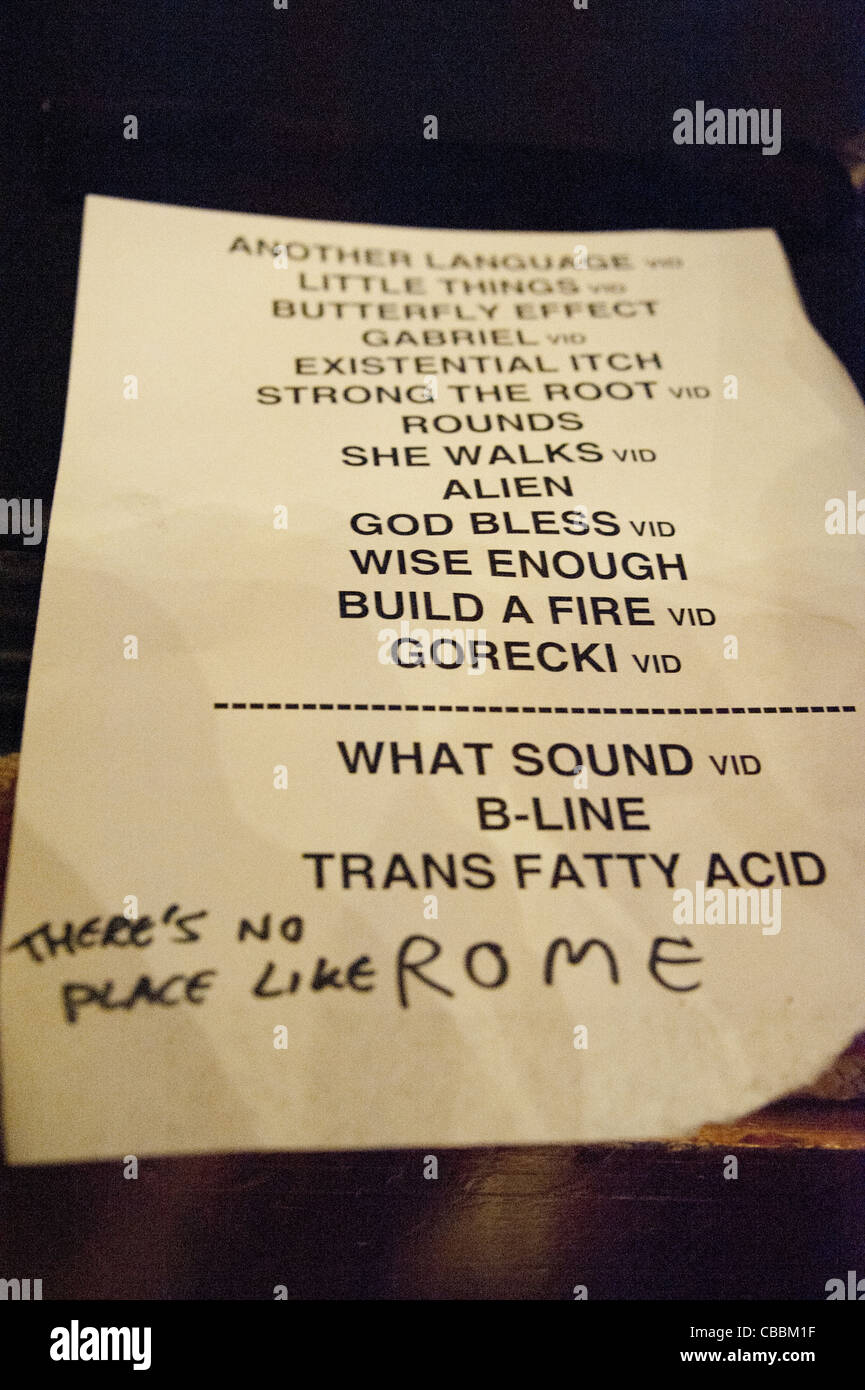 ANOTHER LANGUAGE VID
LITTLE THINGS VID
BUTTERFLY EFFECT
GABRIEL VID
EXISTENTIAL ITCH
STRONG THE ROOT VID
ROUNDS
SHE WALKS VID
ALIEN
GOD BLESS VID
WISE ENOUGH
BUILD A FIRE VID
GORECKI VID
------------------------------------
WHAT SOUND VID
B-LINE
TRANS FATTY ACID
THERE'S NO
PLACE LIKE ROME
alamy
alamy
alamy
a a
a a a
a a
a a a
a a
a a
a a a
a
alamy
Image ID: CBBM1F
www.alamy.com